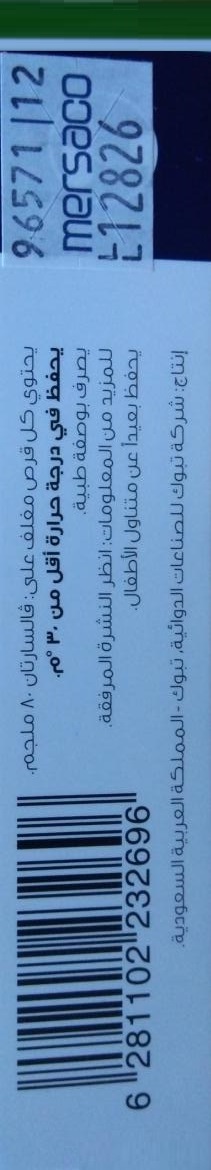 96571 112
mersaco
L12826
يحتوي كل قرص مغلف على: ڤالسارتان ٨٠ ملجم.
يحفظ في درجة حرارة أقل من ٣٠ °م.
يصرف بوصفة طبية.
للمزيد من المعلومات: انظر النشرة المرفقة.
يحفظ بعيداً عن متناول الأطفال.
إنتاج: شركة تبوك للصناعات الدوائية، تبوك - المملكة العربية السعودية.
6 281102 232696